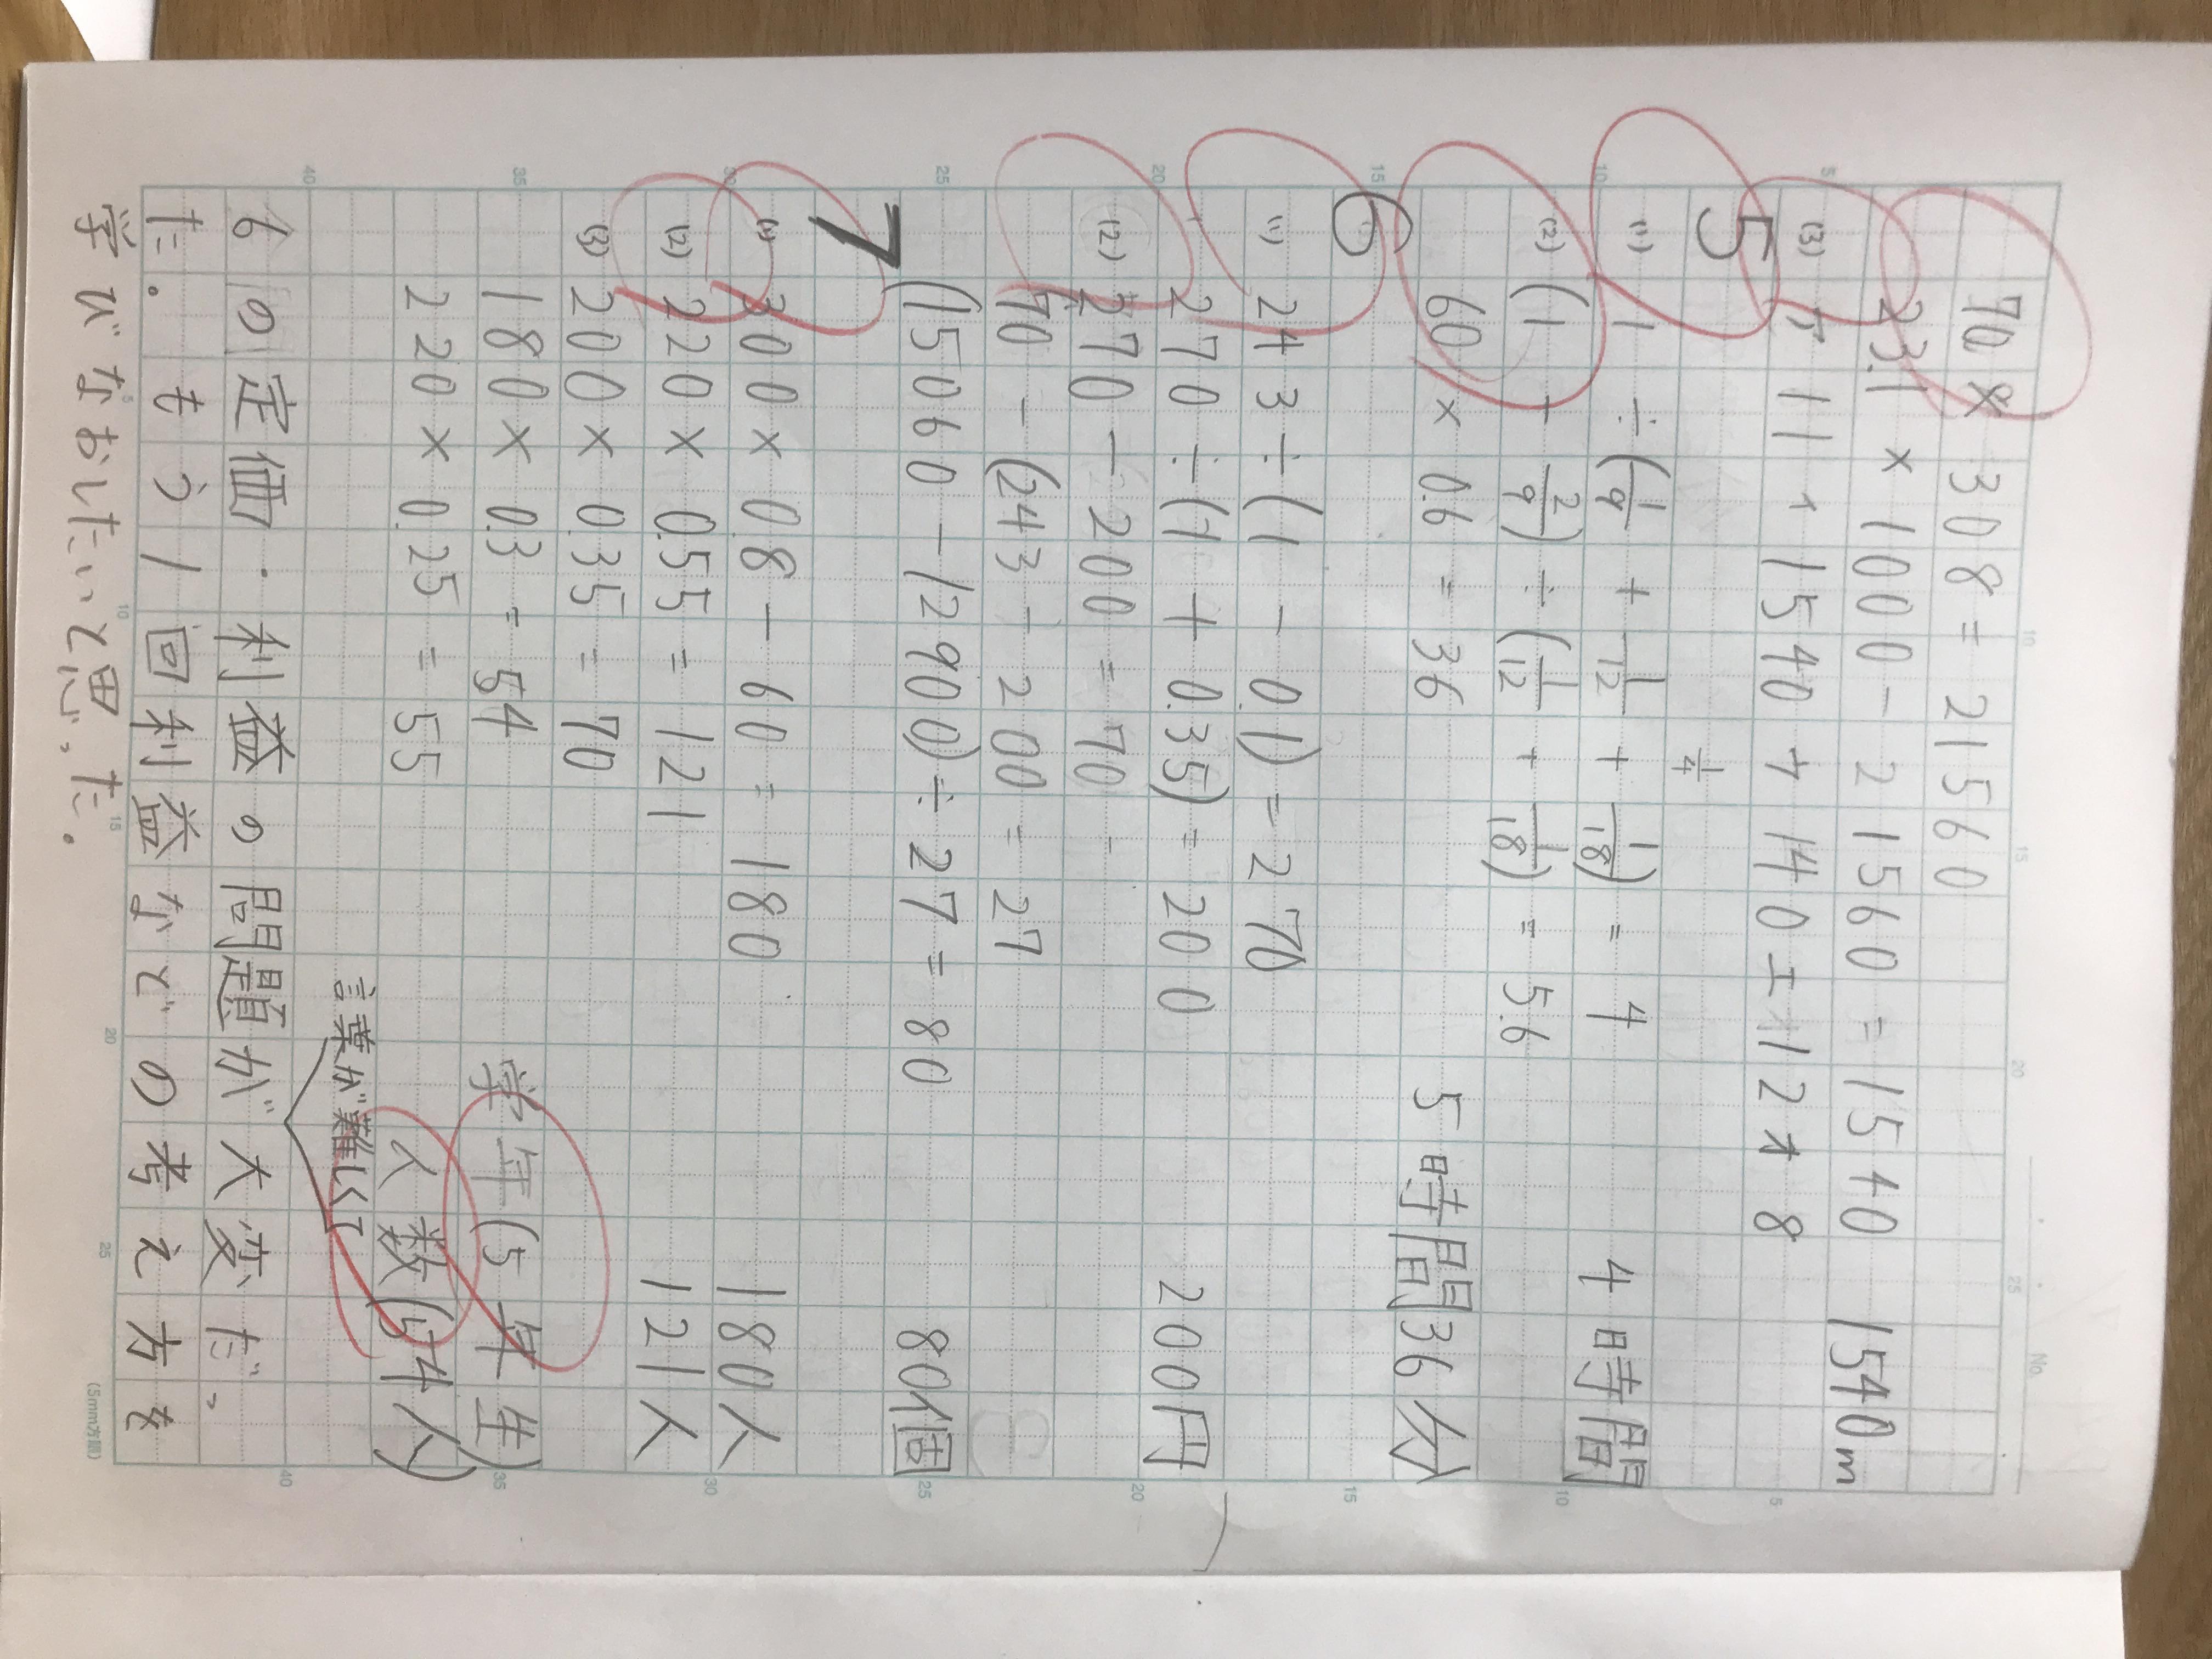 70 × 308 = 21560
23.1 × 1000 - 21560 = 1540 1540m
(3) ア 11 イ 1540 ウ 140 エ 112 オ 8
5
1/4
(1) 1 ÷ (1/9 + 1/12 + 1/18) = 4 4時間
(2) (1 + 2/9) ÷ (1/12 + 1/18) = 5.6
60 × 0.6 = 36 5時間36分
6
(1) 243 ÷ (1 - 0.1) = 270
270 ÷ (1 + 0.35) = 200 200円
(2) 270 - 200 = 70
70 - (243 - 200 = 27
(15060 - 12900) ÷ 27 = 80 80個
7
(1) 300 × 0.8 - 60 = 180 180人
(2) 220 × 0.55 = 121 121人
(3) 200 × 0.35 = 70
180 × 0.3 = 54 学年(5年生)
220 × 0.25 = 55 人数(54人)
言葉が難しくて
6の定価・利益の問題が大変だっ
た。もう1回利益などの考え方を
学びなおしたいと思った。
No.
5 10 15 20 25 30 35 40
5 10 15 20 25 30 35 40
10 15 20 25
5 10 15 20 25
(5mm方眼)